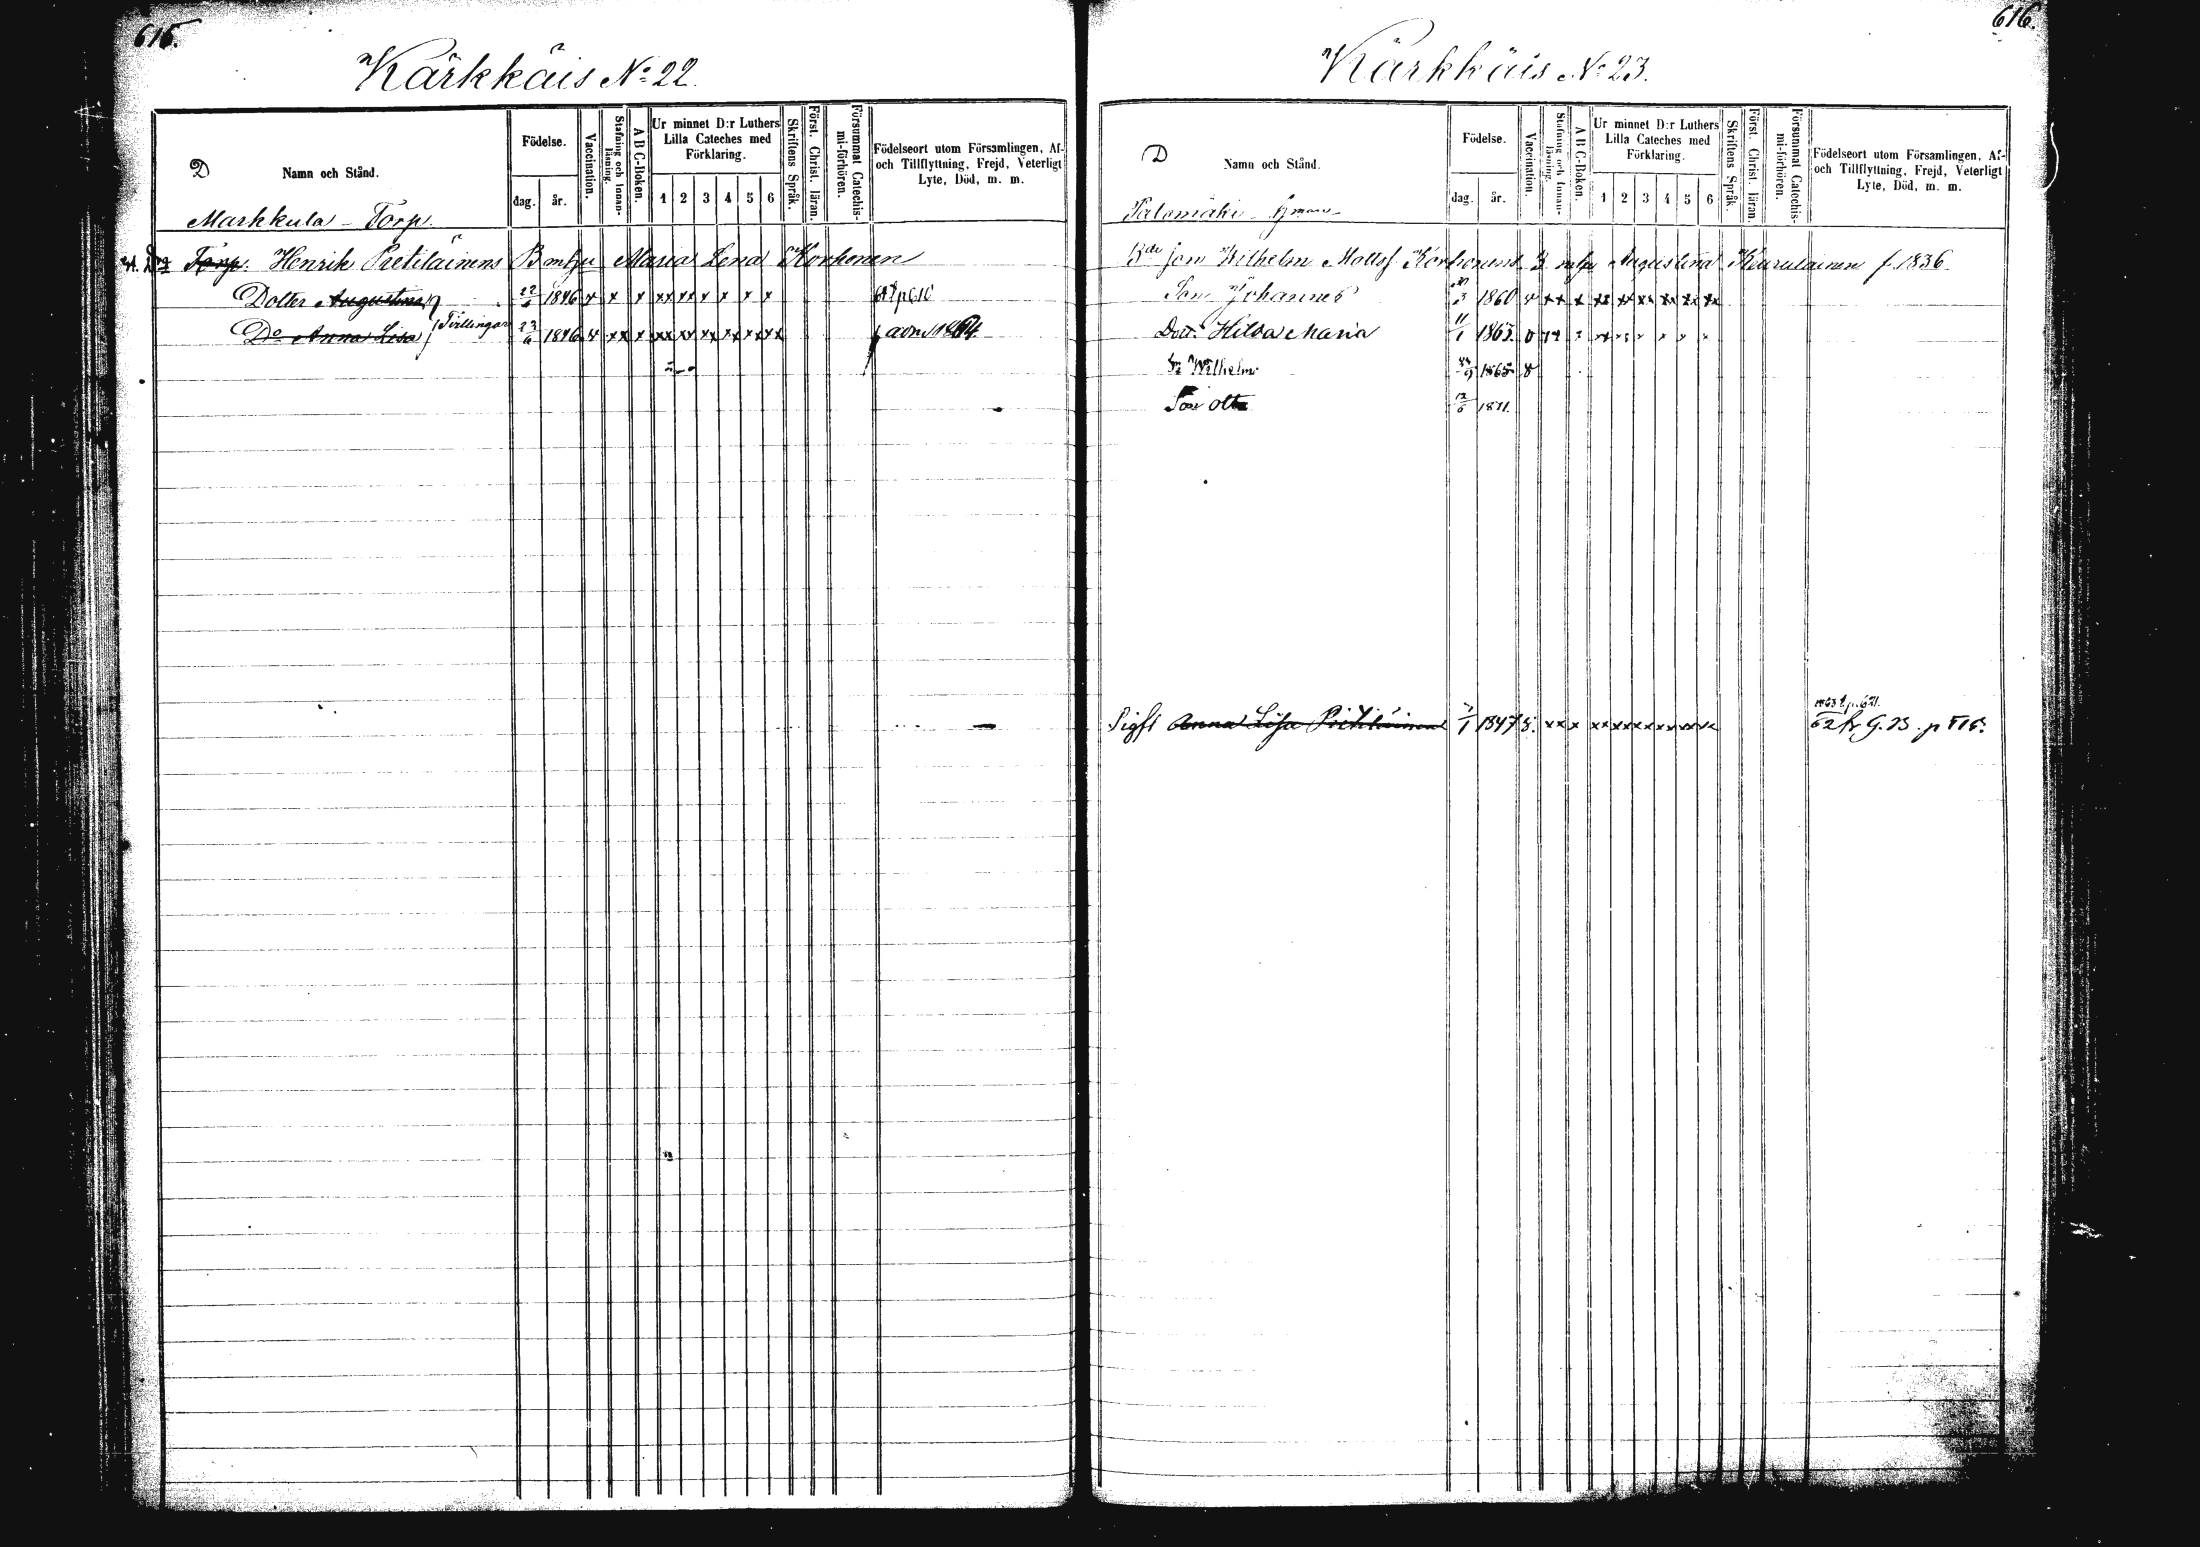 615.
Kärkkäis No 22.
D
Namn och Stånd.
Födelse.
dag.
år.
Vaccination.
Stafning och Innan-
läsning.
A B C-Boken.
Ur minnet D:r Luthers
Lilla Cateches med
Förklaring.
1 2 3 4 5 6
Skriftens Språk.
Först. Christ. läran.
Försummat Catechis-
mi-förhören.
Födelseort utom Församlingen, Af-
och Tillflyttning, Frejd, Veterligt
Lyte, Död, m. m.
Markkula - Torp.
Torp. Henrik Pietiläinens B m hu Maria Lena Korhonen
Dotter Augustina 1846 x x x xx xx x x x x
Do Anna Lisa Tvillingar 23/6 1846 v xx x xx xx xx xx xx xx
616.
Kärkkäis No 23.
D
Namn och Stånd.
Födelse.
dag.
år.
Vaccination.
Stafning och Innan-
läsning.
A B C-Boken.
Ur minnet D:r Luthers
Lilla Cateches med
Förklaring.
1 2 3 4 5 6
Skriftens Språk.
Först. Christ. läran.
Försummat Catechis-
mi-förhören.
Födelseort utom Församlingen, Af-
och Tillflyttning, Frejd, Veterligt
Lyte, Död, m. m.
Palomäki
Bde son Wilhelm Mattsf Korhonens Augustina Kiurulainen f. 1836
Son Johannes 1860 v xx x xx xx xx xx xx xx
Dott. Hilda Maria 11/1 1863
Wilhelm 1865 v
Son Otto 1871.
Anna Lisa Pietiläinen 1847 v. xx x xx xx xx xx xx xx
62 fr G. 23. p